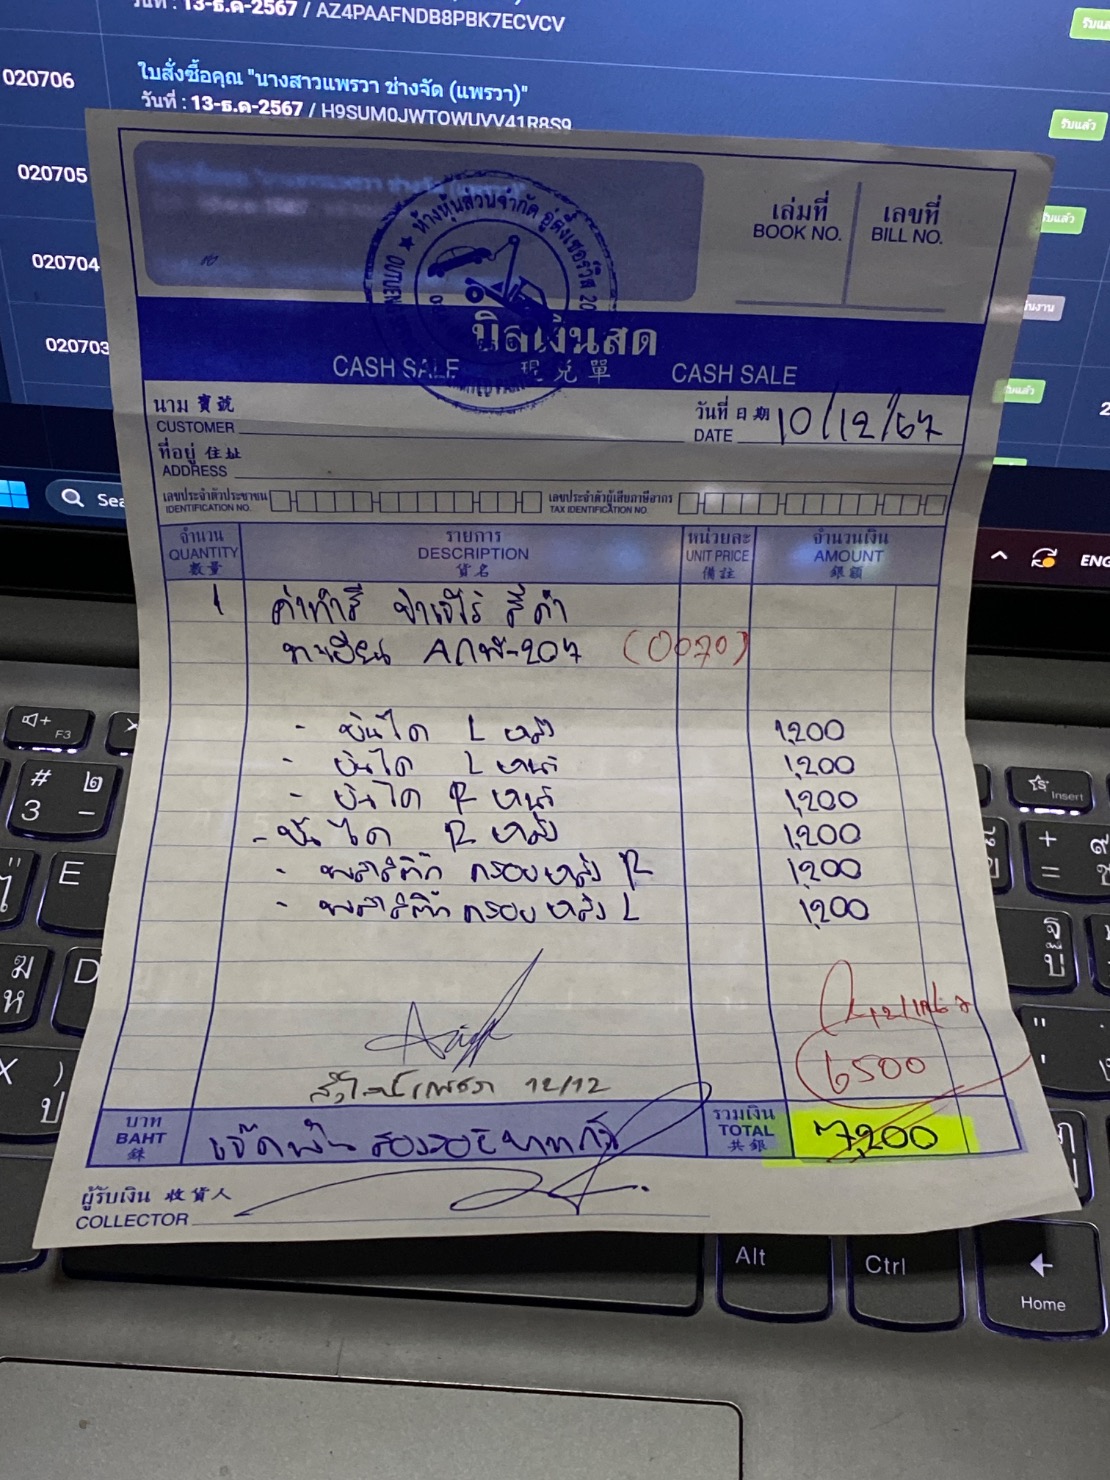 วันที่ : 13-ธ.ค-2567 / AZ4PAAFNDB8PBK7ECVCV
020706
ใบสั่งซื้อคุณ "นางสาวแพรวา ช่างจัด (แพรวา)"
วันที่ : 13-ธ.ค-2567 / H9SUM0JWTOWUVV41R8S9
รับแล้ว
020705
รับแล้ว
020704
020703
รับแล้ว
ห้างหุ้นส่วนจำกัด อู่ต๋งเซอร์วิส 20
เล่มที่ เลขที่
BOOK NO. BILL NO.
บิลเงินสด
CASH SALE 現兌單 CASH SALE
นาม 寶號
CUSTOMER
วันที่ 日期
DATE 10/12/67
ที่อยู่ 住址
ADDRESS
เลขประจำตัวประชาชน
IDENTIFICATION NO.
เลขประจำตัวผู้เสียภาษีอากร
TAX IDENTIFICATION NO.
จำนวน รายการ หน่วยละ จำนวนเงิน
QUANTITY DESCRIPTION UNIT PRICE AMOUNT
數量 貨名 備註 銀額
1 ค่าทำสี ปาเจโร่ สีดำ
ทะเบียน (0070)
- บันได L หลัง 1,200
- บันได L หน้า 1,200
- บันได R หน้า 1,200
- บันได R หลัง 1,200
- พลาสติก ครอบหลัง R 1,200
- พลาสติก ครอบหลัง L 1,200
6500
12/12
บาท
BAHT
銖
เจ็ดพันสองร้อยบาทถ้วน
รวมเงิน
TOTAL
共銀
7,200
ผู้รับเงิน 收貨人
COLLECTOR
Sea
ENG
F3
# ๒
3 -
E
D
Insert
+
=
Alt
Ctrl
Home